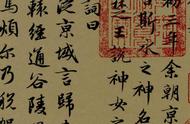 初三年余朝京
斯水之神名
王說神女之
詞曰
從京域言歸
轅經通谷陵
馬煩爾乃稅